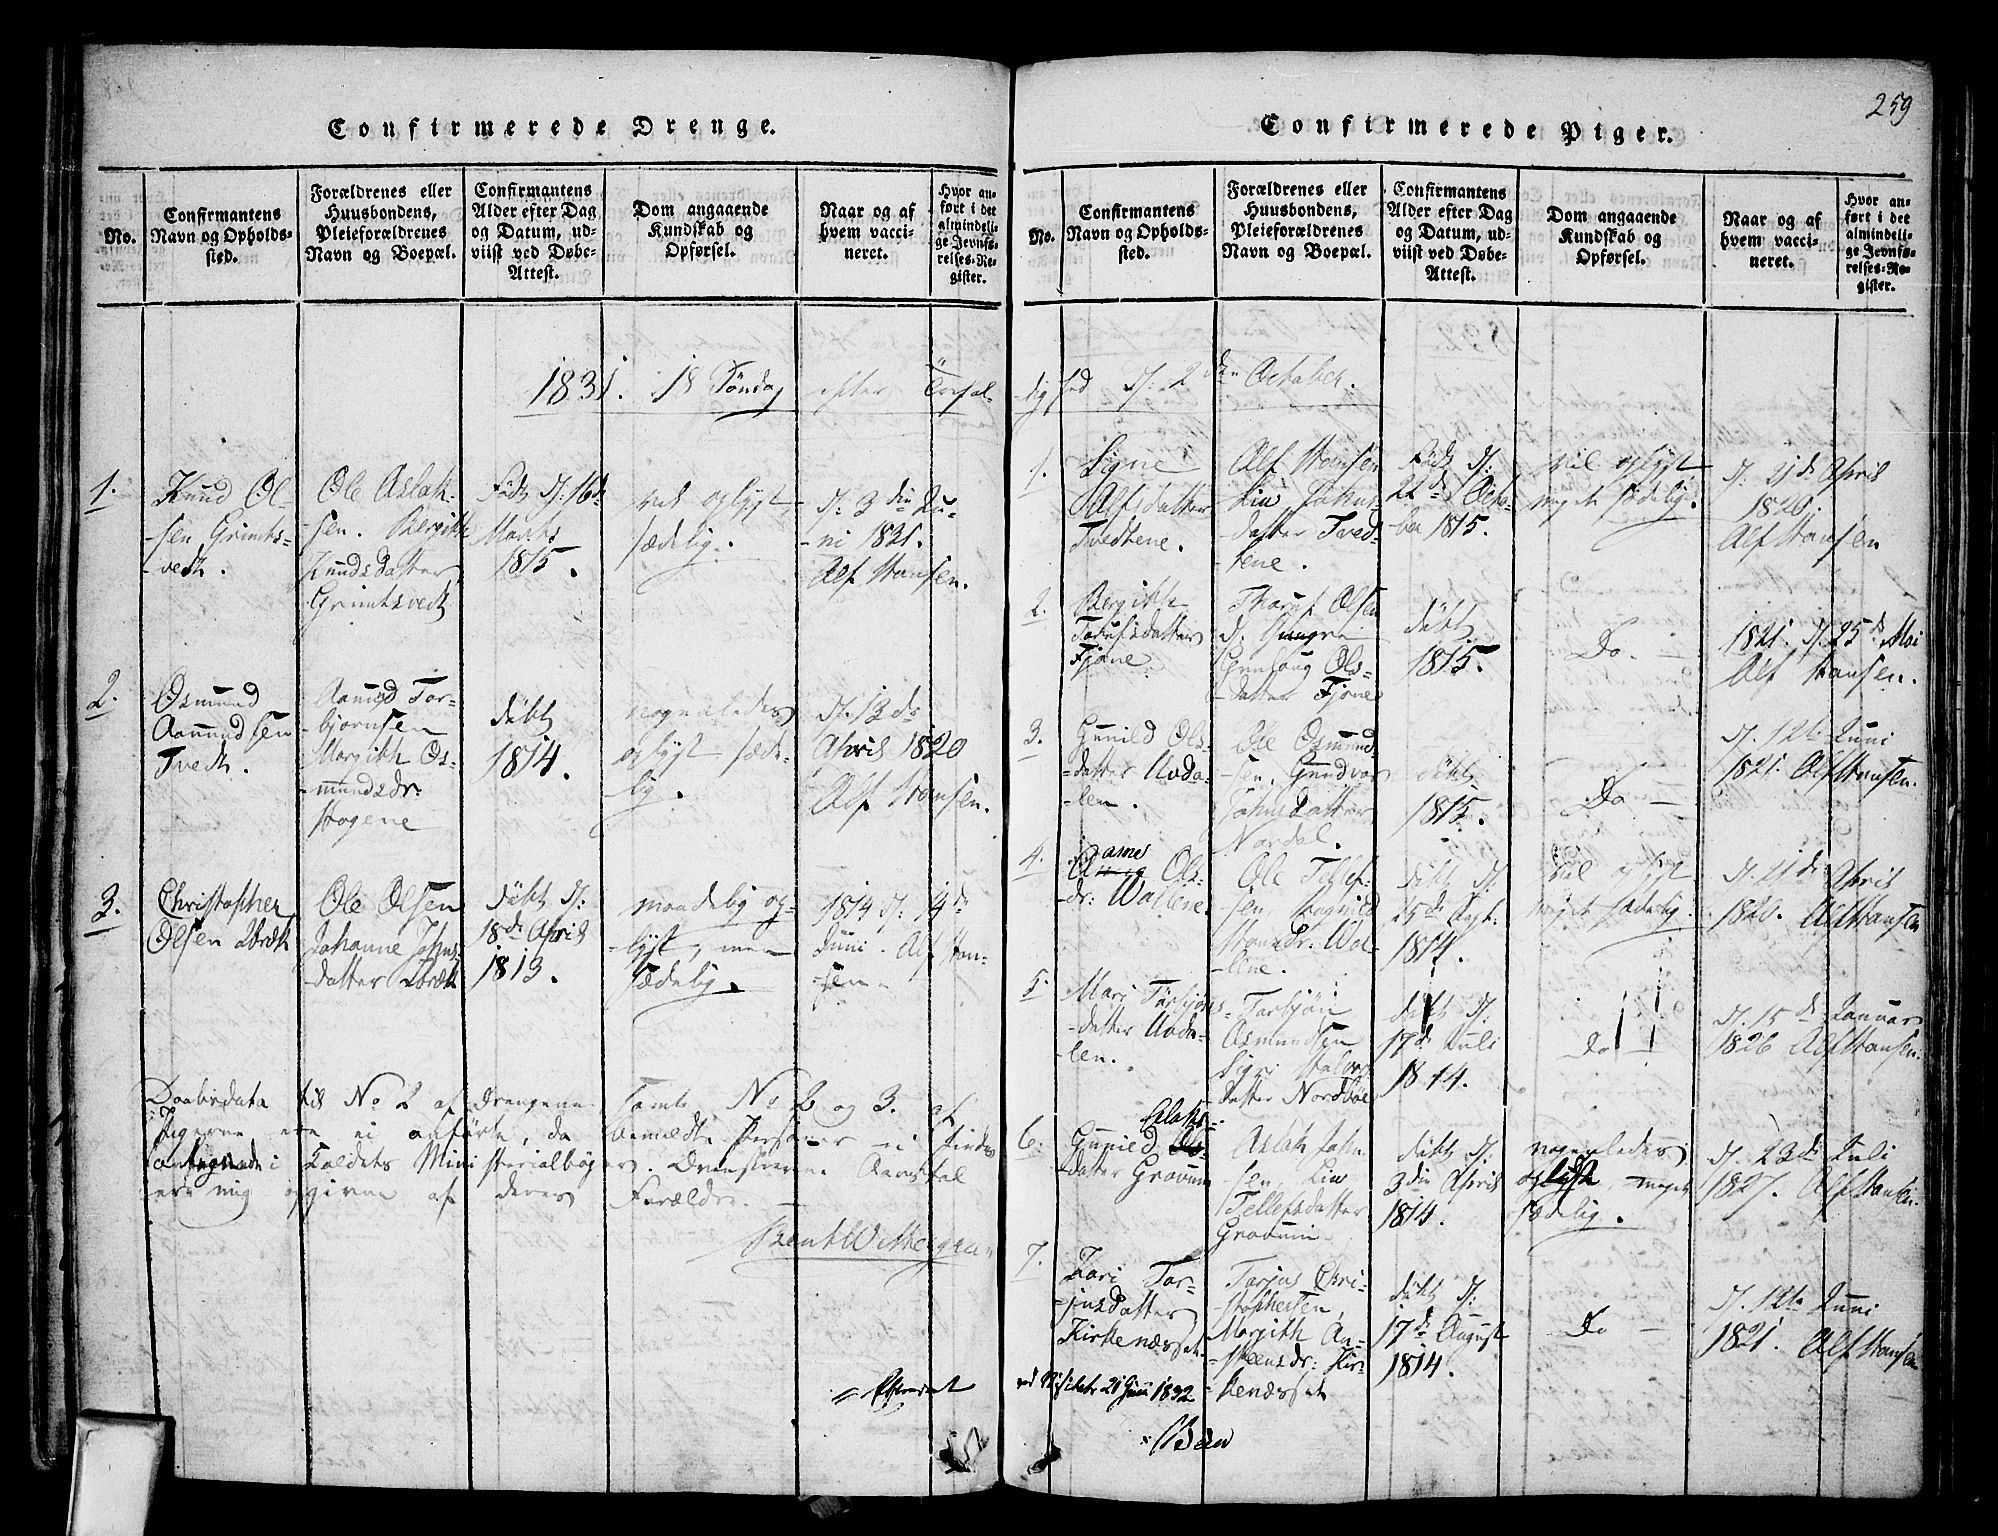 259
Confirmerede Drenge.
No.
Confirmantens
Navn og Opholds-
sted.
Forældrenes eller
Huusbondens,
Pleieforældrenes
Navn og Boepæl.
Confirmantens
Alder efter Dag
og Datum, ud-
viist ved Døbe-
Attest.
Dom angaaende
Kundskab og
Opførsel.
Naar og af
hvem vacci-
neret.
Hvor an-
ført i det
almindeli-
ge Jevnfø-
relses-Re-
gister.
1831. 18 Söndag efter
1.
Knud Ol-
sen Grimts-
vedt.
Ole Aslak-
sen. Bergith
Knudsdatter
Grimtsvedt
Föd d: 16de
Marts
1815.
vel oplyst,
sædelig.
d: 3die Ju-
ni 1821.
Alf Hansen.
2.
Osmund
Aamundsen
Tvedt.
Aamund Tor-
björnsen
Margith Os-
mundsdr:
Hogene
döbt
1814.
nogenledes
oplyst, sæde-
lig.
d. 13de
April 1820
Alf Hansen.
3.
Christopher
Olsen
Ole Olsen
Johanne Johns-
datter
döbt d:
18de April
1813.
maadelig op-
lyst, men
sædelig.
1814 d: 14de
Juni. Alf Han-
sen.
Daabsdata til No 2 af Drengene, samt No 2 og 3 af
Pigerne ere ei anförte, da bemeldte Personer ei findes
antegnede i Kaldets Ministerialbøger.
ere mig opgivne af deres Forældre.
Confirmerede Piger.
No.
Confirmantens
Navn og Opholds-
sted.
Forældrenes eller
Huusbondens,
Pleieforældrenes
Navn og Boepæl.
Confirmantens
Alder efter Dag
og Datum, ud-
viist ved Døbe-
Attest.
Dom angaaende
Kundskab og
Opførsel.
Naar og af
hvem vacci-
neret.
Hvor an-
ført i det
almindeli-
ge Jevnfø-
relses-Re-
gister.
d: 2den October.
1.
Signe
Alfsdatter
Tvedtene.
Alf Hansen
Liv Johns-
datter Tved-
tene.
Föd d:
22de Octo-
ber 1815.
vel oplyst
meget sædelig.
d: 21de April
1820.
Alf Hansen
2.
Bergith
Torufsdatter
Fjone
Thoruf Olsen
Gunlaug Ols-
datter Fjone
döbt
1815.
Do. —
1821. d. 25de Mai
Alf Hansen.
3.
Gunild Ols-
datter Avda-
len.
Ole Osmund-
sen, Gundvor
Johnsdatter
Nordal.
döbt
1815.
Do —
d. 12te Juni
1821. Alf Hansen.
4.
Aasne Ols-
dr: Wallene.
Ole Tellef-
sen, Ragnild
Hansdr: Wal-
lene.
döbt d:
25de Sept.
1814.
vel oplyst
meget sædelig.
d: 21de April
1820. Alf Hansen
5.
Mari Torbjøns-
datter Avda-
len.
Torbjön
Asmundsen
Sigri Halvors-
datter Nordböe
döbt d:
17de Juli
1814.
Do —
d. 15de Januar
1826 Alf Hansen.
6.
Gunild Aslaks-
datter Gravum
Aslak John-
sen, Liv
Tellefsdatter
Gravum
döbt d:
3die April
1814.
nogenledes
oplyst, meget
sædelig.
d. 23de Juli
1827. Alf Hansen.
7.
Kari Tor-
jusdatter
Kirkenæsset.
Torjus Chri-
stophersen,
Margith An-
stensdr: Kir-
kenæsset
döbt d:
17de August
1814.
Do —
d. 12te Juni
1821. Alf Hansen
Efterseet
ved Visitats 21 Juni 1832